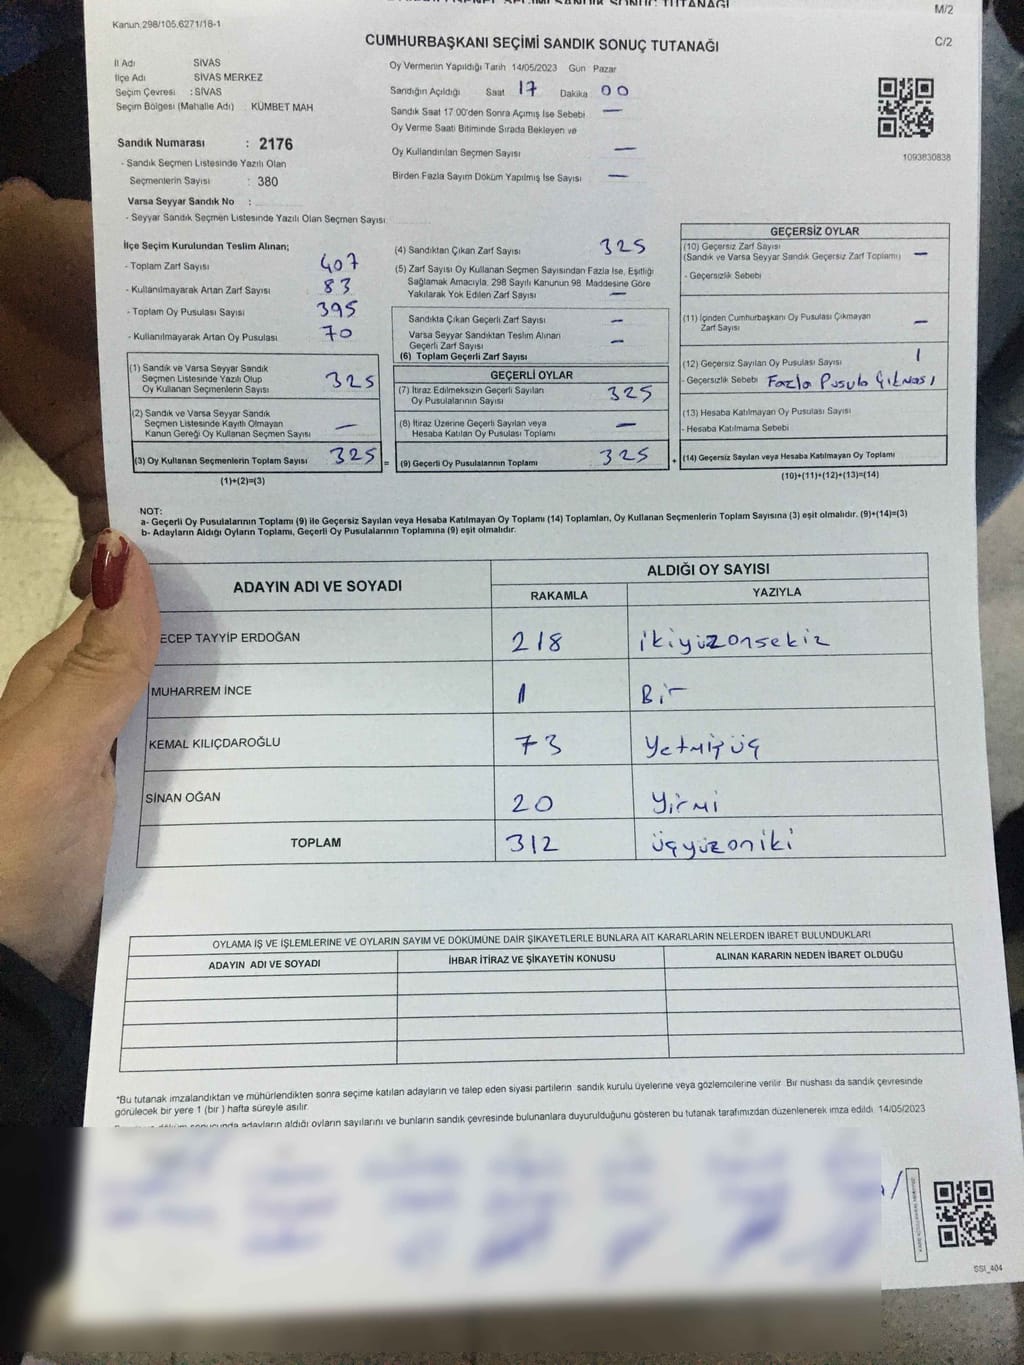 M/2
Kanun 298/105.6271/18-1
CUMHURBAŞKANI SEÇİMİ SANDIK SONUÇ TUTANAĞI
C/2
İl Adı SİVAS
İlçe Adı SİVAS MERKEZ
Seçim Çevresi : SİVAS
Seçim Bölgesi (Mahalle Adı) : KÜMBET MAH
Oy Vermenin Yapıldığı Tarih 14/05/2023 Gün Pazar
Sandığın Açıldığı Saat 17 Dakika 00
Sandık Saat 17:00'den Sonra Açımış İse Sebebi —
Oy Verme Saati Bitiminde Sırada Bekleyen ve
Oy Kullandırılan Seçmen Sayısı —
Birden Fazla Sayım Döküm Yapılmış İse Sayısı —
1093830838
Sandık Numarası : 2176
- Sandık Seçmen Listesinde Yazılı Olan
Seçmenlerin Sayısı : 380
Varsa Seyyar Sandık No :
- Seyyar Sandık Seçmen Listesinde Yazılı Olan Seçmen Sayısı
İlçe Seçim Kurulundan Teslim Alınan;
- Toplam Zarf Sayısı 407
- Kullanılmayarak Artan Zarf Sayısı 83
- Toplam Oy Pusulası Sayısı 395
- Kullanılmayarak Artan Oy Pusulası 70
(1) Sandık ve Varsa Seyyar Sandık
Seçmen Listesinde Yazılı Olup
Oy Kullanan Seçmenlerin Sayısı 325
(2) Sandık ve Varsa Seyyar Sandık
Seçmen Listesinde Kayıtlı Olmayan
Kanun Gereği Oy Kullanan Seçmen Sayısı —
(3) Oy Kullanan Seçmenlerin Toplam Sayısı 325 =
(1)+(2)=(3)
(4) Sandıktan Çıkan Zarf Sayısı 325
(5) Zarf Sayısı Oy Kullanan Seçmen Sayısından Fazla İse, Eşitliği
Sağlamak Amacıyla, 298 Sayılı Kanunun 98. Maddesine Göre
Yakılarak Yok Edilen Zarf Sayısı —
Sandıkta Çıkan Geçerli Zarf Sayısı —
Varsa Seyyar Sandıktan Teslim Alınan
Geçerli Zarf Sayısı —
(6) Toplam Geçerli Zarf Sayısı
GEÇERLİ OYLAR
(7) İtiraz Edilmeksizin Geçerli Sayılan
Oy Pusulalarının Sayısı 325
(8) İtiraz Üzerine Geçerli Sayılan veya
Hesaba Katılan Oy Pusulası Toplamı —
(9) Geçerli Oy Pusulalarının Toplamı 325 +
GEÇERSİZ OYLAR
(10) Geçersiz Zarf Sayısı
(Sandık ve Varsa Seyyar Sandık Geçersiz Zarf Toplamı) —
- Geçersizlik Sebebi
(11) İçinden Cumhurbaşkanı Oy Pusulası Çıkmayan
Zarf Sayısı —
(12) Geçersiz Sayılan Oy Pusulası Sayısı 1
- Geçersizlik Sebebi Fazla Pusula Çıkması
(13) Hesaba Katılmayan Oy Pusulası Sayısı
- Hesaba Katılmama Sebebi
(14) Geçersiz Sayılan veya Hesaba Katılmayan Oy Toplamı
(10)+(11)+(12)+(13)=(14)
NOT:
a- Geçerli Oy Pusulalarının Toplamı (9) ile Geçersiz Sayılan veya Hesaba Katılmayan Oy Toplamı (14) Toplamları, Oy Kullanan Seçmenlerin Toplam Sayısına (3) eşit olmalıdır. (9)+(14)=(3)
b- Adayların Aldığı Oyların Toplamı, Geçerli Oy Pusulalarının Toplamına (9) eşit olmalıdır.
ADAYIN ADI VE SOYADI
ALDIĞI OY SAYISI
RAKAMLA YAZIYLA
ECEP TAYYİP ERDOĞAN 218 ikiyüzonsekiz
MUHARREM İNCE 1 Bir
KEMAL KILIÇDAROĞLU 73 Yetmişüç
SİNAN OĞAN 20 Yirmi
TOPLAM 312 üçyüzoniki
OYLAMA İŞ VE İŞLEMLERİNE VE OYLARIN SAYIM VE DÖKÜMÜNE DAİR ŞİKAYETLERLE BUNLARA AİT KARARLARIN NELERDEN İBARET BULUNDUKLARI
ADAYIN ADI VE SOYADI İHBAR İTİRAZ VE ŞİKAYETİN KONUSU ALINAN KARARIN NEDEN İBARET OLDUĞU
*Bu tutanak imzalandıktan ve mühürlendikten sonra seçime katılan adayların ve talep eden siyasi partilerin sandık kurulu üyelerine veya gözlemcilerine verilir. Bir nüshası da sandık çevresinde
görülecek bir yere 1 (bir ) hafta süreyle asılır.
adayların aldığı oyların sayılarını ve bunların sandık çevresinde bulunanlara duyurulduğunu gösteren bu tutanak tarafımızdan düzenlenerek imza edildi. 14/05/2023
SSI_404